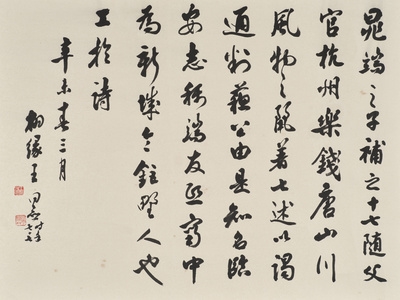 晁端之子補之十七隨父
官杭州樂錢唐山川
風物之麗著七述以謁
通判蘇公由是知名臨
安志稱端友熙寧中
為新城令鉅野人也
工於詩
辛未春三月
栩緣王同愈時年